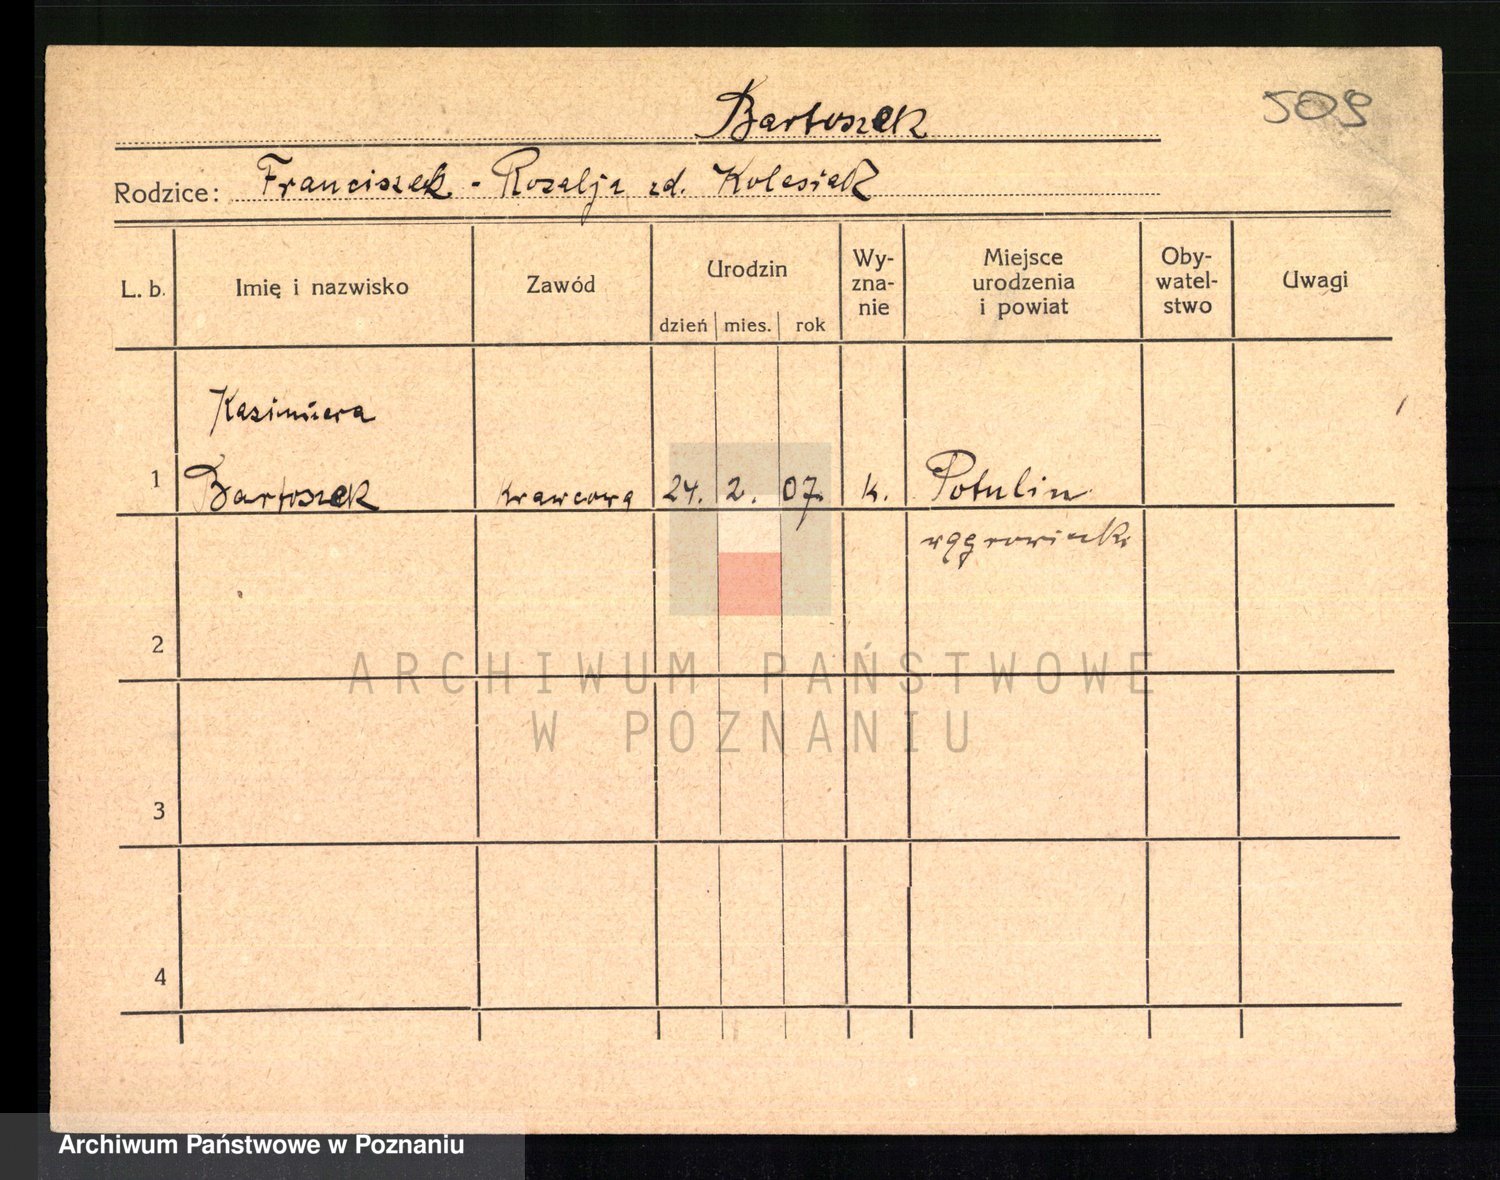 Bartoszek
509
Rodzice: Franciszek - Rozalja zd. Kolasiak
L. b.
Imię i nazwisko
Zawód
Urodzin
dzień mies. rok
Wy-
zna-
nie
Miejsce
urodzenia
i powiat
Oby-
watel-
stwo
Uwagi
Kazimiera
1 Bartoszek Krawcowa 24. 2. 07. k. Potulin
wągrowiecki
2
ARCHIWUM PAŃSTWOWE
W POZNANIU
3
4
Archiwum Państwowe w Poznaniu